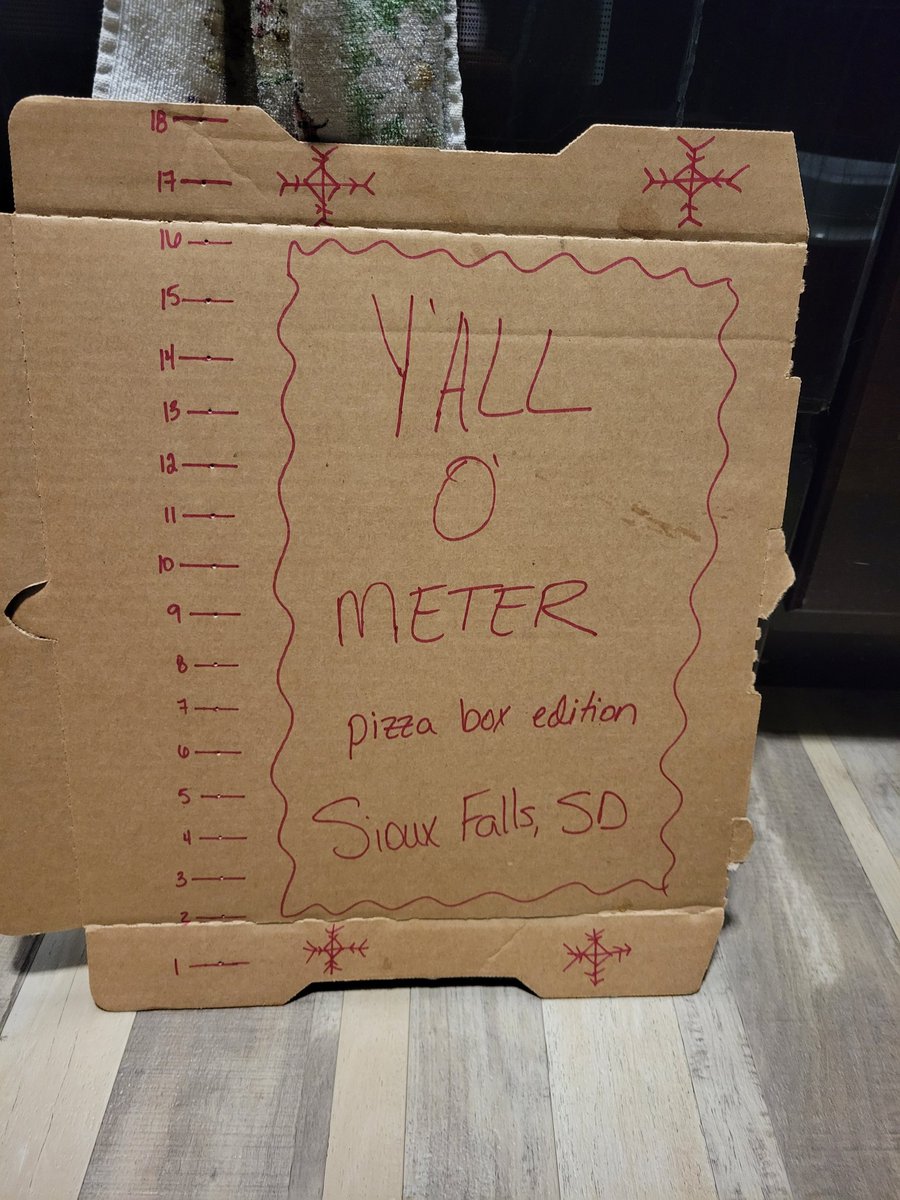 18
17
16
15
14
13
12
11
10
9
8
7
6
5
4
3
2
1
Y'ALL
O'
METER
pizza box edition
Sioux Falls, SD